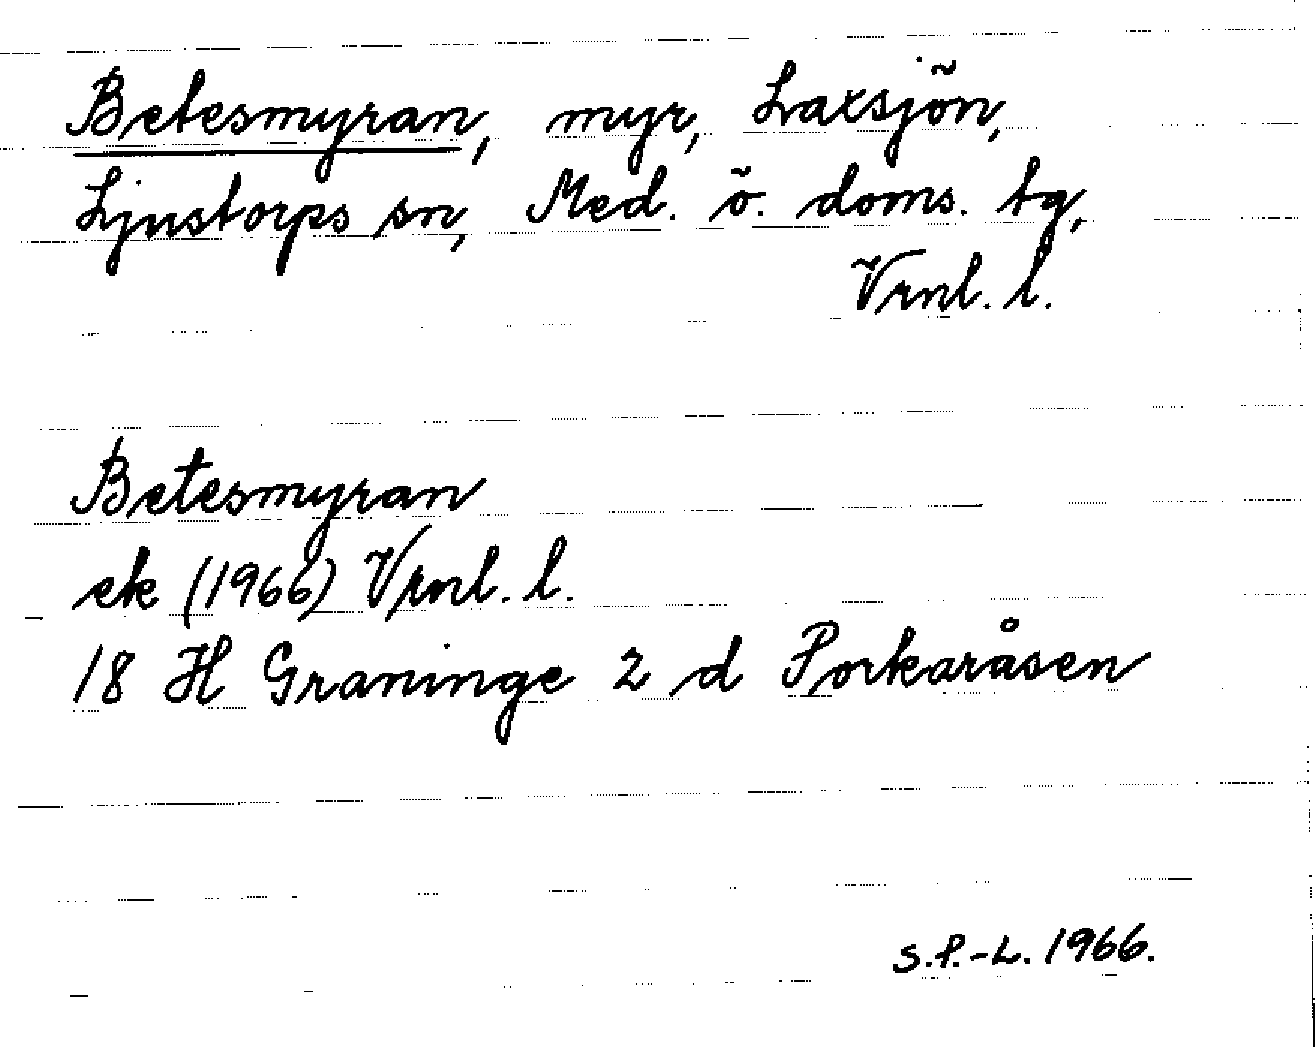 Betesmyran, myr, Laxsjön,
Ljustorps sn, Med. ö. doms. tg,
Vrnl. l.
Betesmyran
ek (1966) Vrnl. l.
18 H Graninge 2 d Porkaråsen
S.P.-L. 1966.